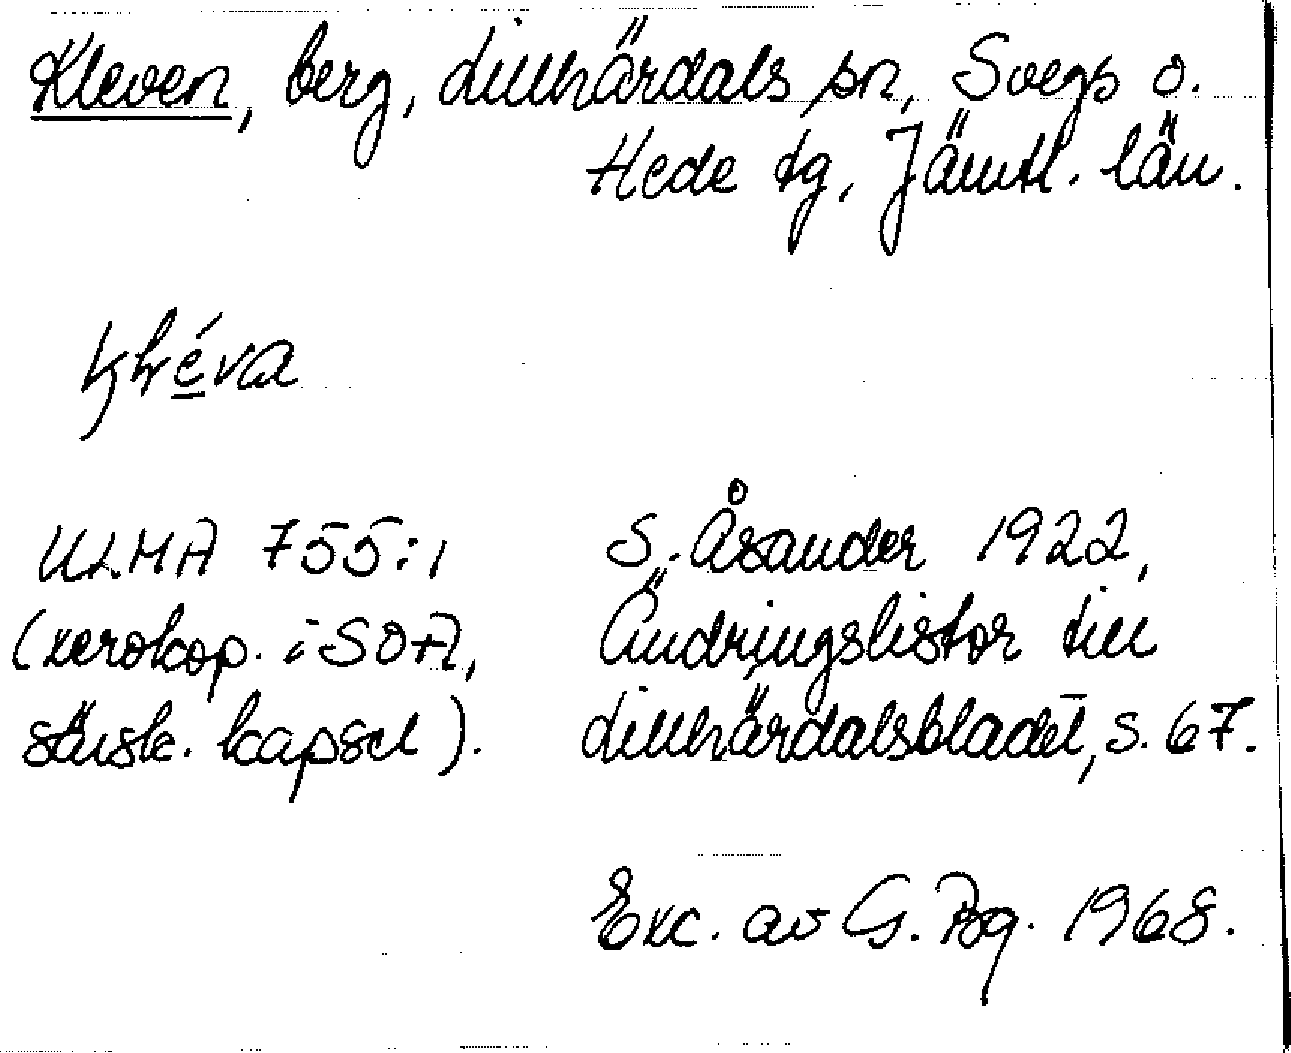 Kleven, berg, Lillhärdals sn, Svegs o.
Hede tg, Jämtl. län.
ULMA 755:1
(xerokop. i SOA,
särsk. kapsel).
S. Åsander 1922,
Ändringslistor till
Lillhärdalsbladet, s. 67.
Exc. av G. Bg. 1968.